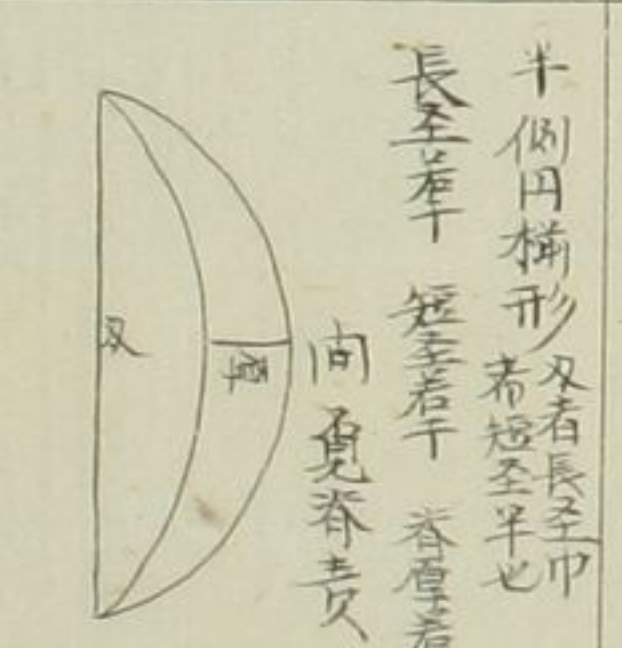 半側円櫛形 刄者長圣巾
者短圣半也
長圣若干 短圣若干 脊厚若
問覓脊責
厚
刄